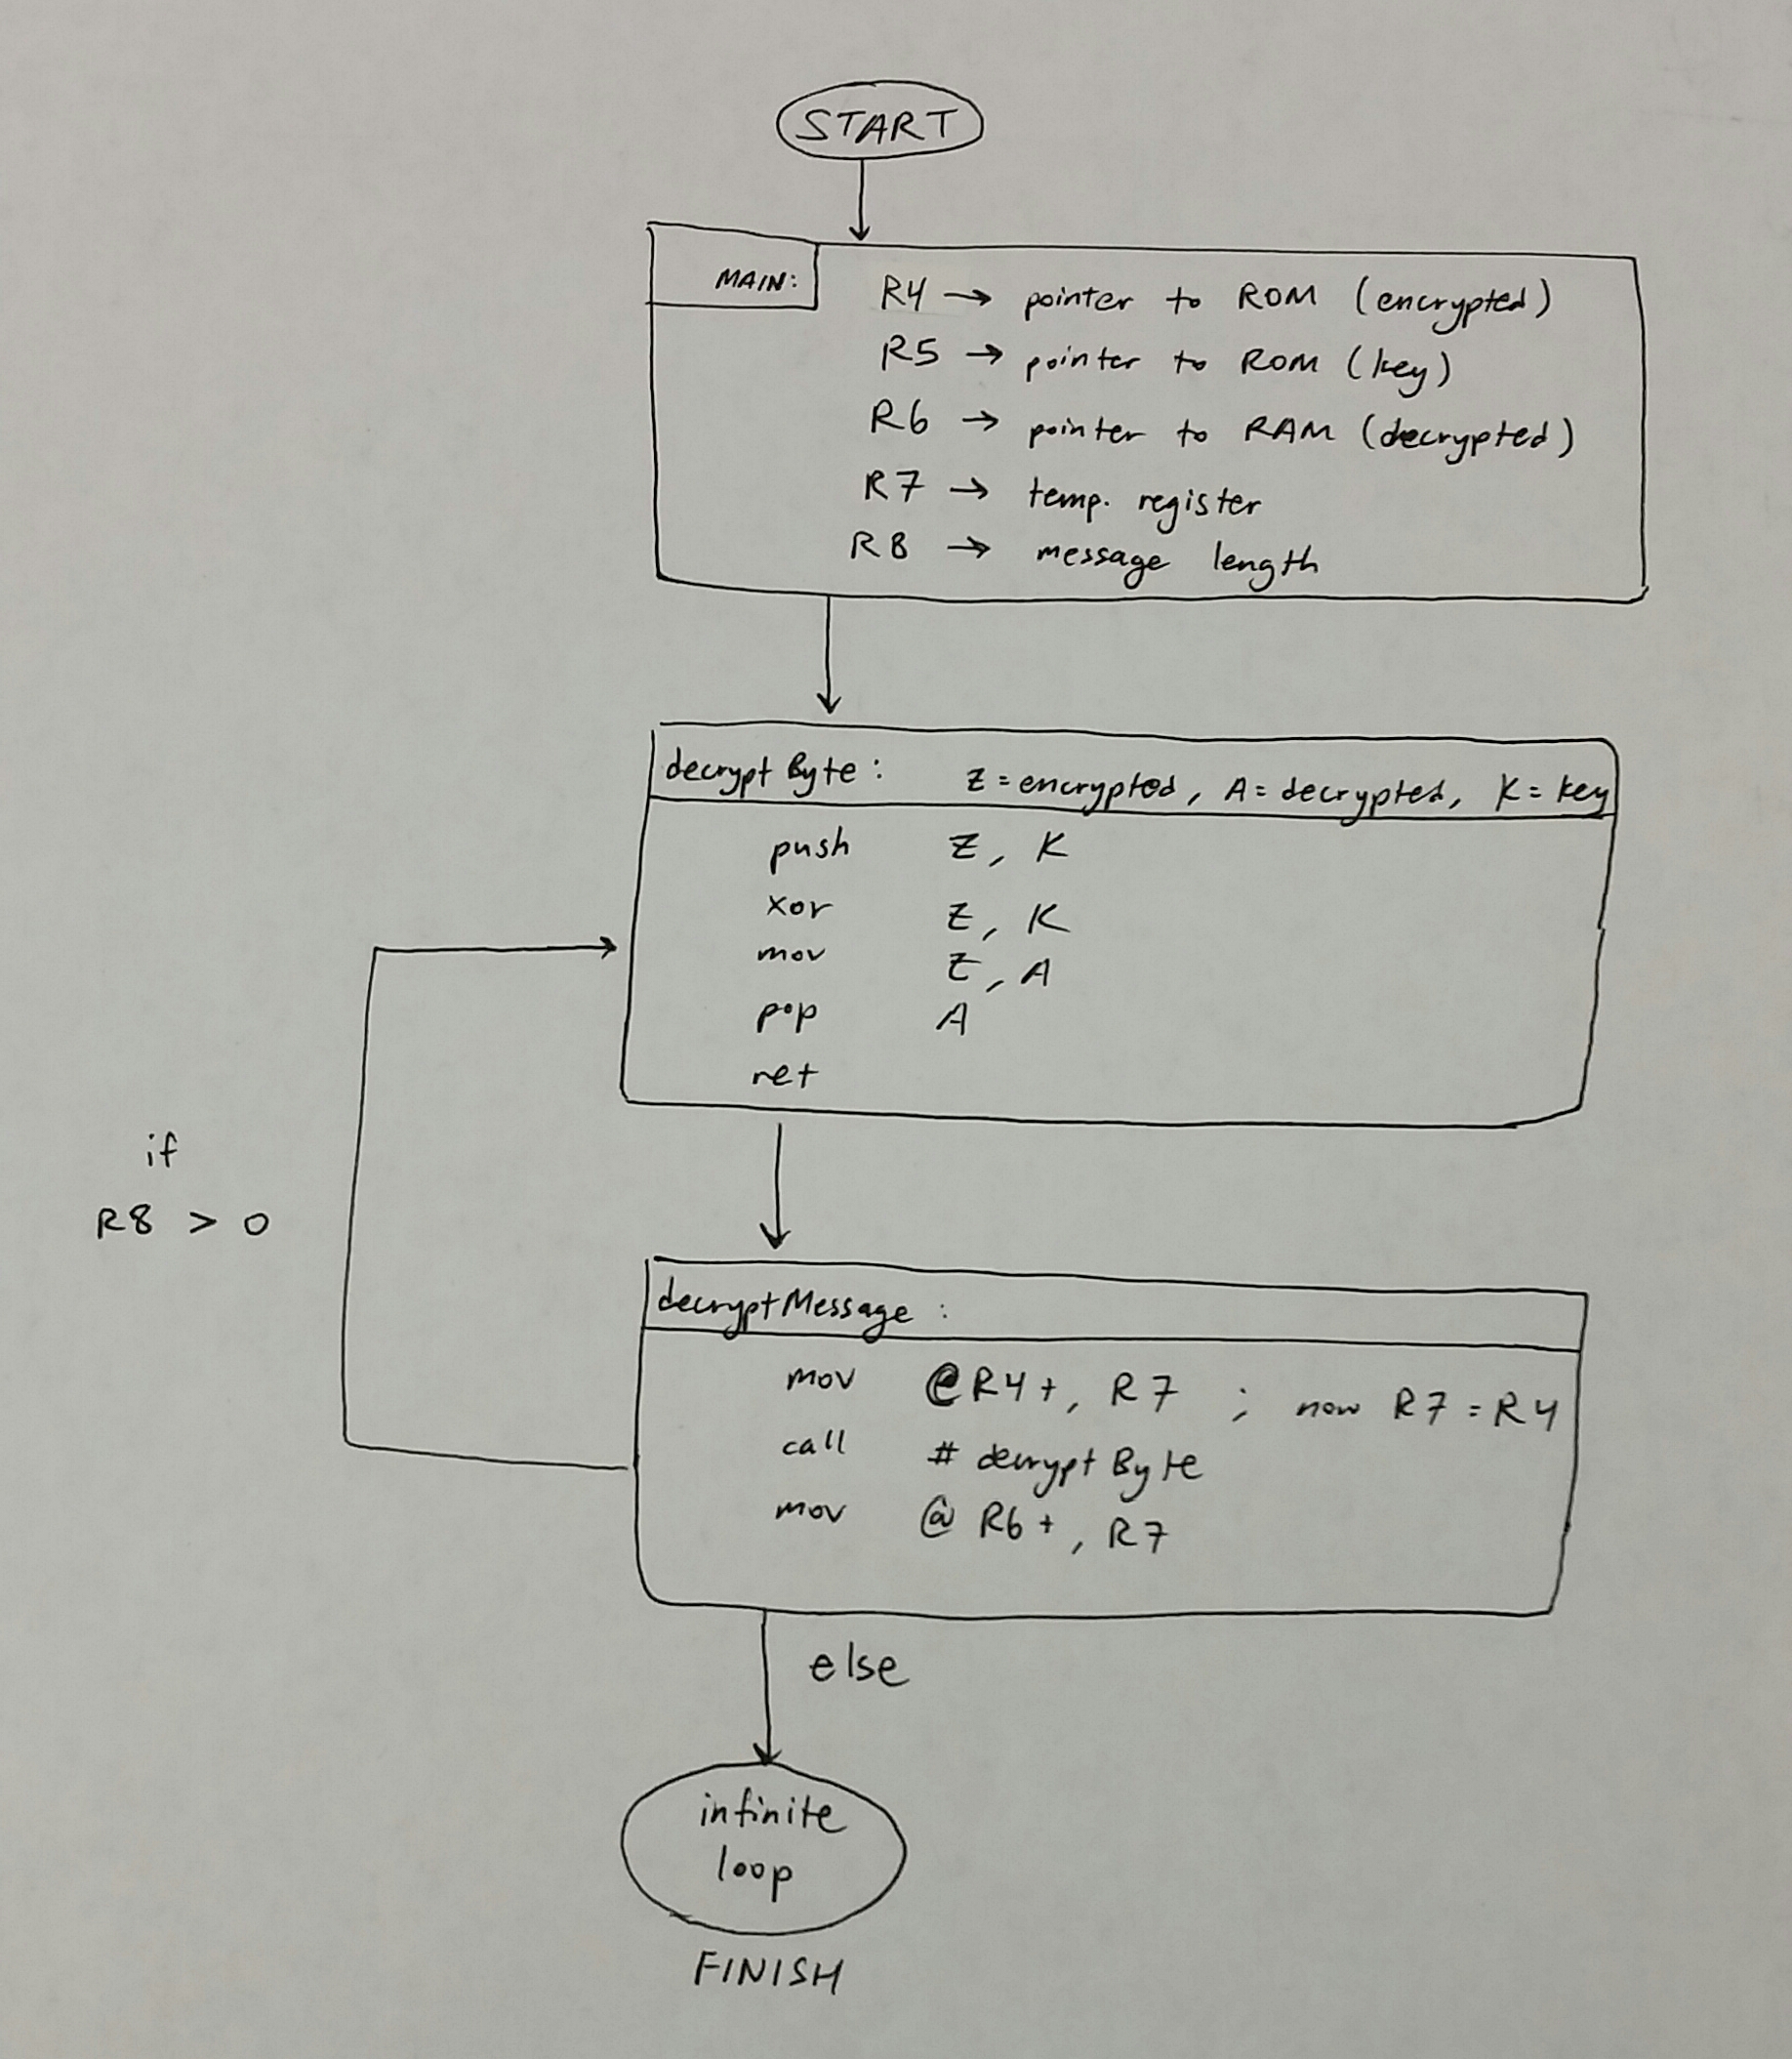 START
MAIN:
R4 → pointer to ROM (encrypted)
R5 → pointer to ROM (key)
R6 → pointer to RAM (decrypted)
R7 → temp. register
R8 → message length
decrypt Byte : Z = encrypted, A = decrypted, K = key
push Z, K
xor Z, K
mov Z, A
pop A
ret
if
R8 > 0
decryptMessage :
mov @R4+, R7 ; now R7 = R4
call # decrypt Byte
mov @R6+, R7
else
infinite
loop
FINISH